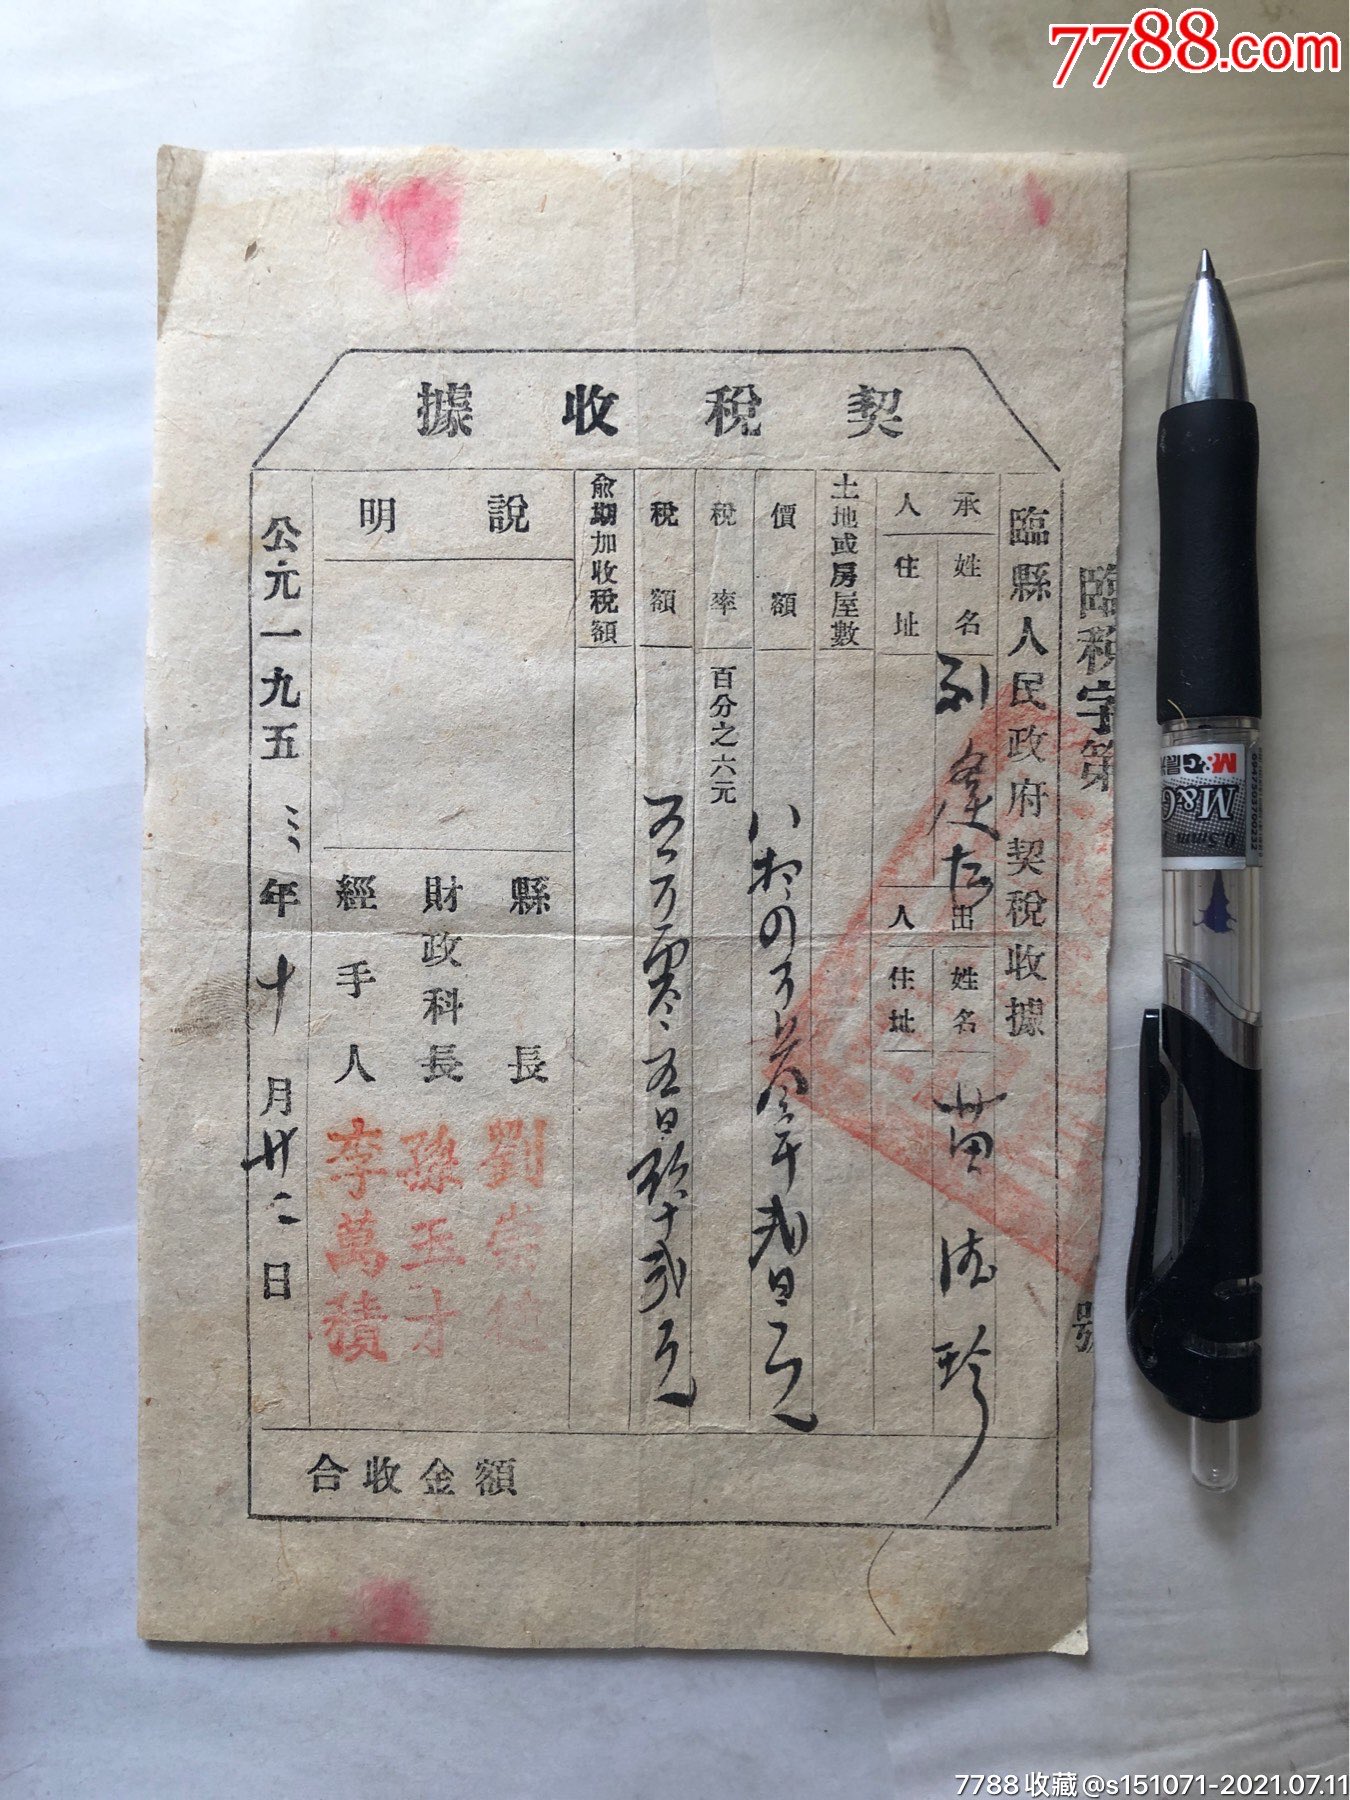 7788.com
契稅收據
臨稅字第 號
臨縣人民政府契稅收據
承 姓名 刘
人 住址
出 姓名 苗 珍
人 住址
土地或房屋數
價額 八拾四万貳千貳百元
稅率 百分之六元
稅額 五万零五百叁十貳元
俞期加收稅額
說明
縣長 劉崇
財政科長 孫玉才
經手人 李萬積
公元一九五三年十月廿二日
合收金額
M&G
M&G
0.5mm
6947503700232
7788收藏@s151071-2021.07.11